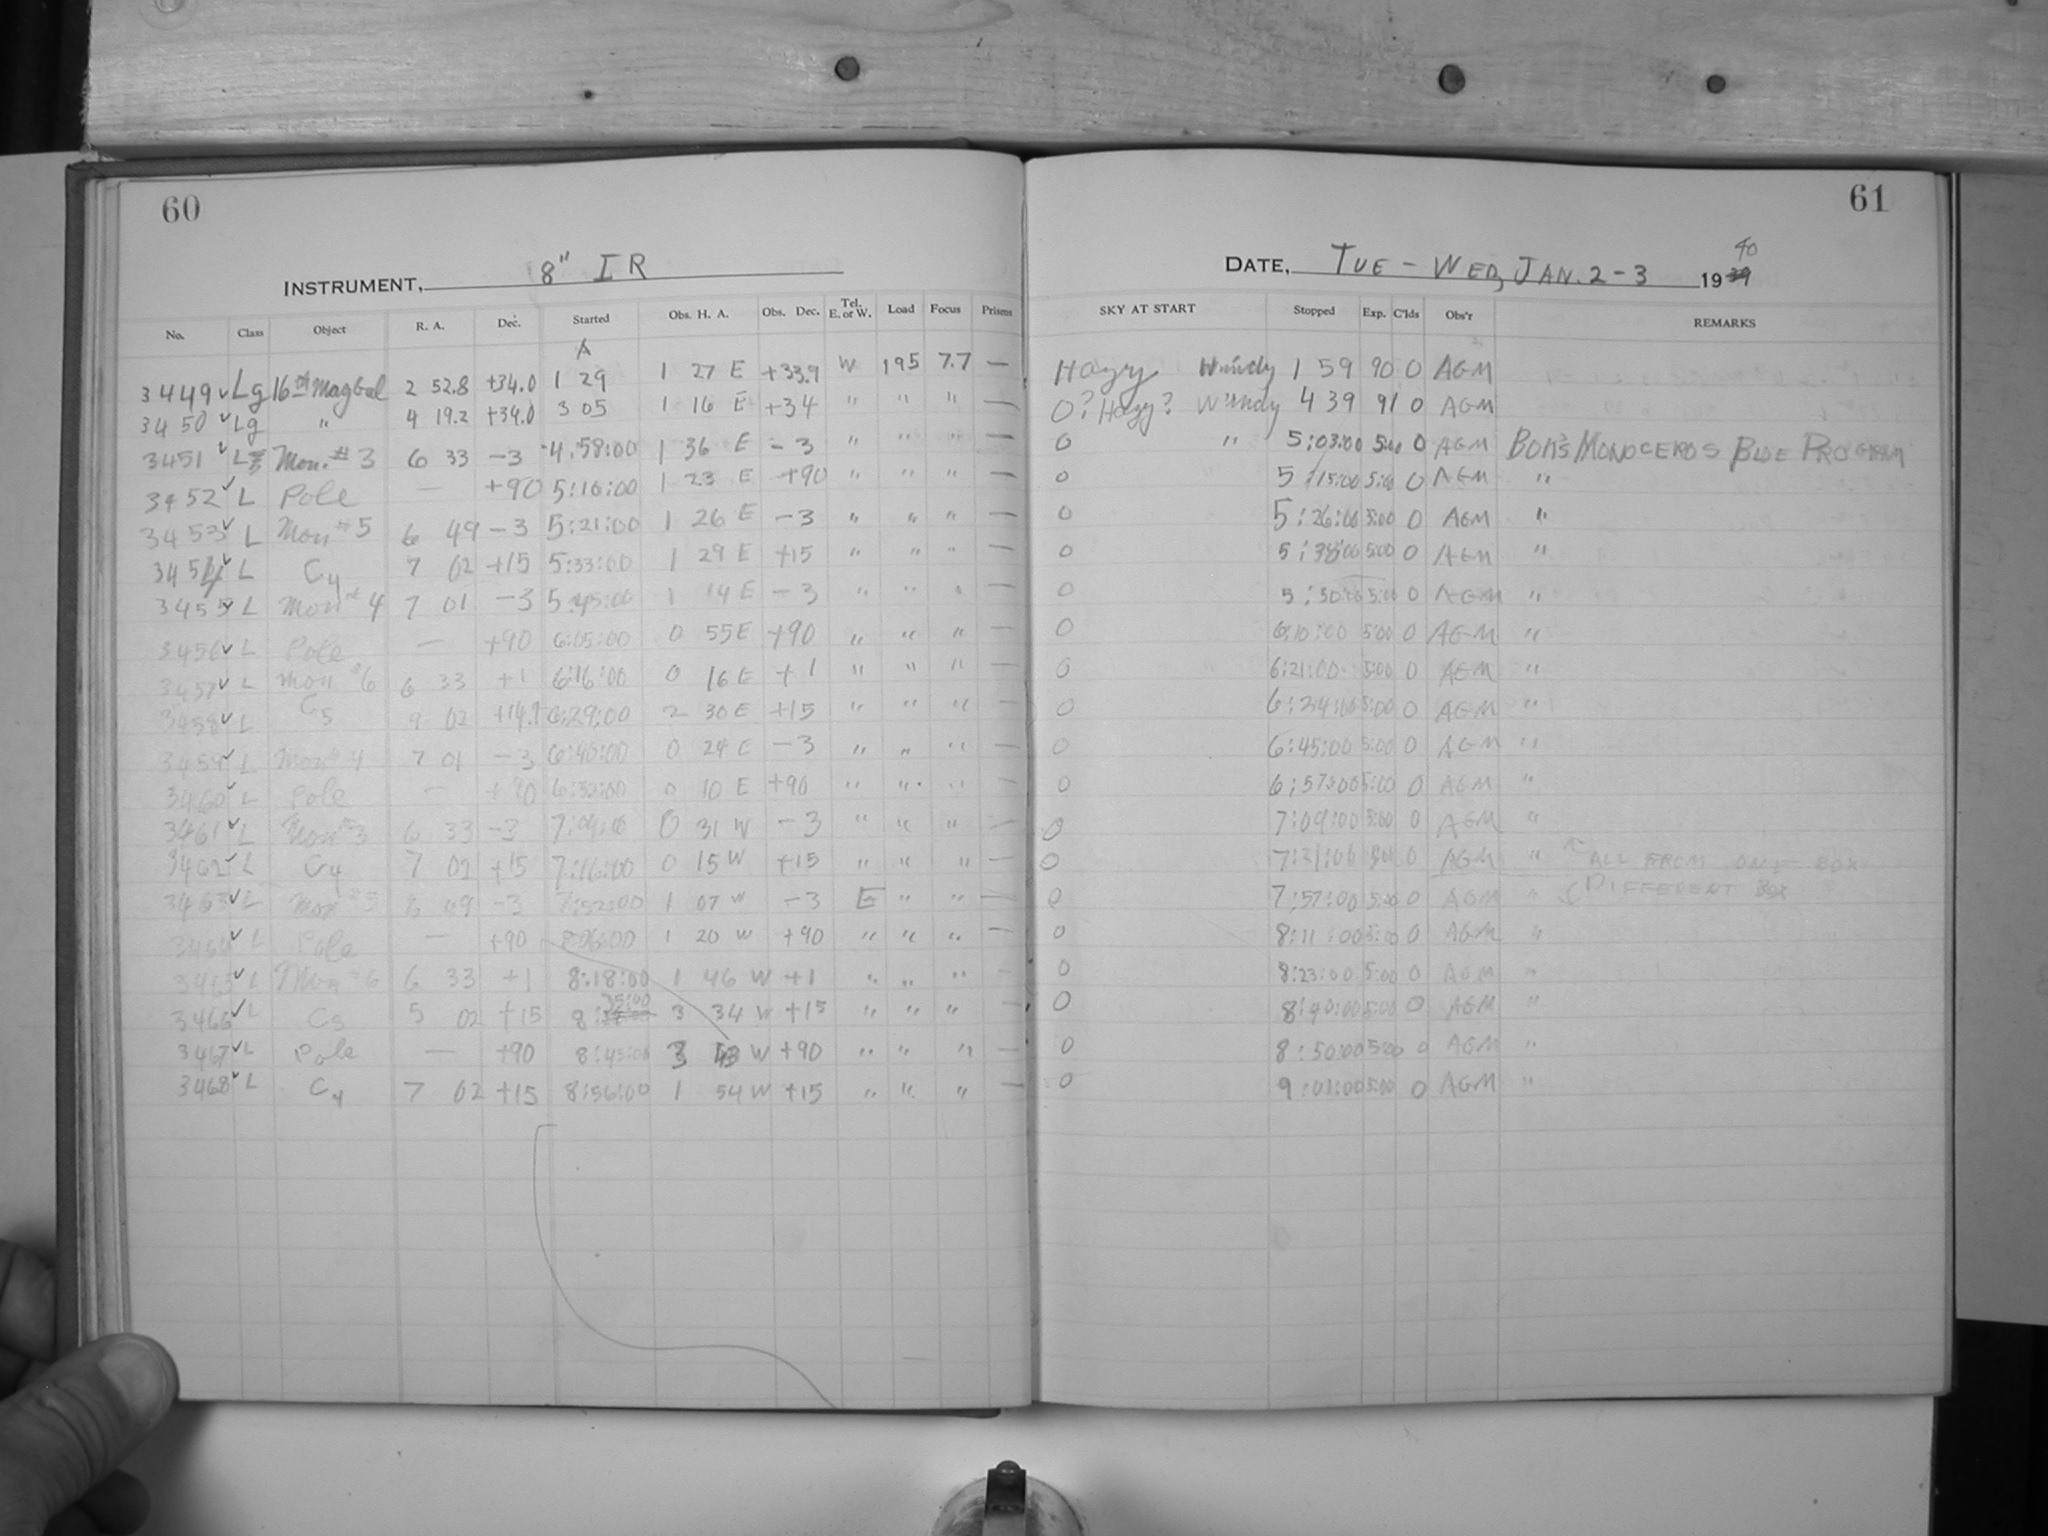 60
INSTRUMENT, 8" IR
No. Class Object R. A. Dec. Started Obs. H. A. Obs. Dec. Tel. E. or W. Load Focus Prisms
A
3449 ✓ Lg 16th Mag Gal 2 52.8 +34.0 1 29 1 27 E +33.9 W 195 7.7 —
3450 ✓ Lg " 4 19.2 +34.0 3 05 1 16 E +34 " " " —
3451 ✓ L Mon. #3 6 33 -3 4:58:00 1 36 E -3 " " " —
3452 ✓ L Pole — +90 5:10:00 1 23 E +90 " " " —
3453 ✓ L Mon #5 6 49 -3 5:21:00 1 26 E -3 " " " —
3454 ✓ L C4 7 02 +15 5:33:00 1 29 E +15 " " " —
3455 ✓ L Mon #4 7 01 -3 5:45:00 1 14 E -3 " " " —
3456 ✓ L Pole — +90 6:05:00 0 55 E +90 " " " —
3457 ✓ L Mon #6 6 33 +1 6:16:00 0 16 E +1 " " " —
3458 ✓ L C5 9 02 +14.9 6:29:00 2 30 E +15 " " " —
3459 ✓ L Mon #4 7 01 -3 6:40:00 0 24 E -3 " " " —
3460 ✓ L Pole — +90 6:52:00 0 10 E +90 " " " —
3461 ✓ L Mon #3 6 33 -3 7:04:00 0 31 W -3 " " " —
3462 ✓ L C4 7 02 +15 7:16:00 0 15 W +15 " " " —
3463 ✓ L Mon #5 6 49 -3 7:52:00 1 07 W -3 E " " —
3464 ✓ L Pole — +90 8:06:00 1 20 W +90 " " " —
3465 ✓ L Mon #6 6 33 +1 8:18:00 1 46 W +1 " " " —
3466 ✓ L C3 5 02 +15 8:35:00 3 34 W +15 " " " —
3467 ✓ L Pole — +90 8:45:00 3 W +90 " " " —
3468 ✓ L C4 7 02 +15 8:56:00 1 54 W +15 " " " —
61
DATE, TUE - WED, JAN. 2-3 1939 40
SKY AT START Stopped Exp. C'lds Obs'r REMARKS
Hazy Windy 1 59 90 0 AGM
0? Hazy? Windy 4 39 91 0 AGM
0 " 5:03:00 5:00 0 AGM BOK'S MONOCEROS BLUE PROGRAM
0 5:15:00 5:00 0 AGM "
0 5:26:00 5:00 0 AGM "
0 5:38:00 5:00 0 AGM "
0 5:50:00 5:00 0 AGM "
0 6:10:00 5:00 0 AGM "
0 6:21:00 5:00 0 AGM "
0 6:34:00 5:00 0 AGM "
0 6:45:00 5:00 0 AGM "
0 6:57:00 5:00 0 AGM "
0 7:09:00 5:00 0 AGM "
0 7:21:00 5:00 0 AGM " ALL FROM ONE BOX
0 7:57:00 5:00 0 AGM " DIFFERENT BOX
0 8:11:00 5:00 0 AGM "
0 8:23:00 5:00 0 AGM "
0 8:40:00 5:00 0 AGM "
0 8:50:00 5:00 0 AGM "
0 9:01:00 5:00 0 AGM "